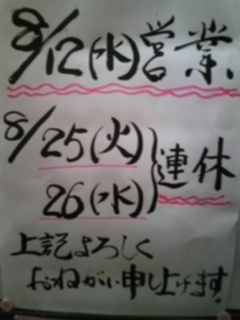 8/12(水)営業
8/25(火)
26(水)
連休
上記よろしく
おねがい申し上げます。